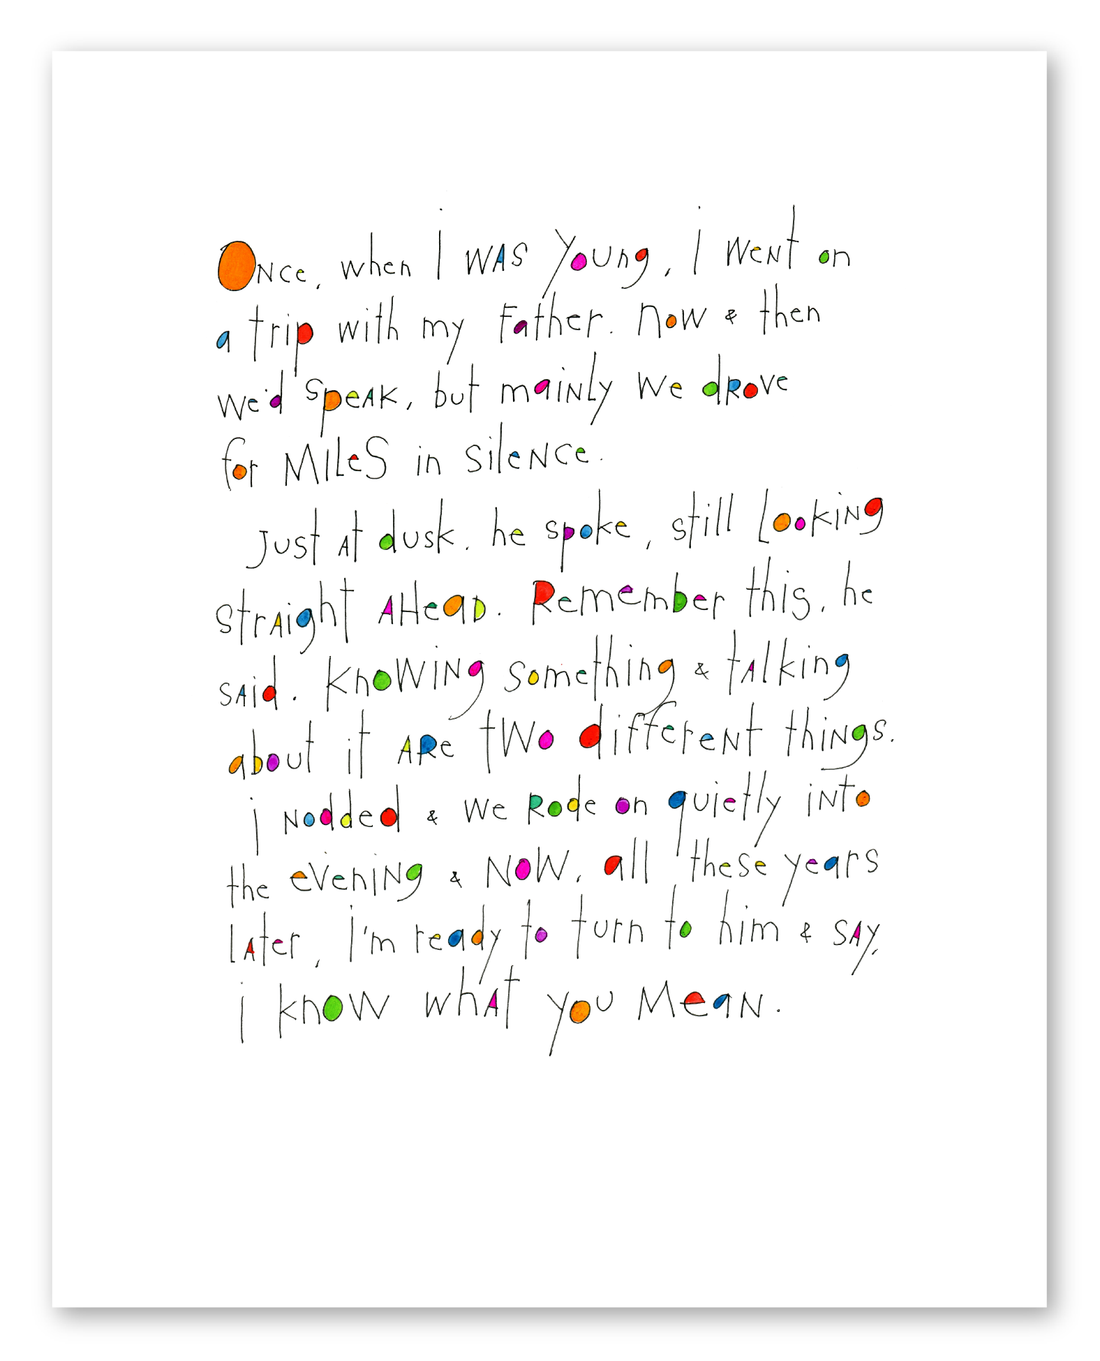 Once, when I was young, I went on
a trip with my Father. Now & then
we'd speak, but mainly we drove
for Miles in silence.
Just at dusk, he spoke, still looking
straight ahead. Remember this, he
said. Knowing something & talking
about it are two different things.
I nodded & we rode on quietly into
the evening & now, all these years
later, I'm ready to turn to him & say,
I know what you mean.